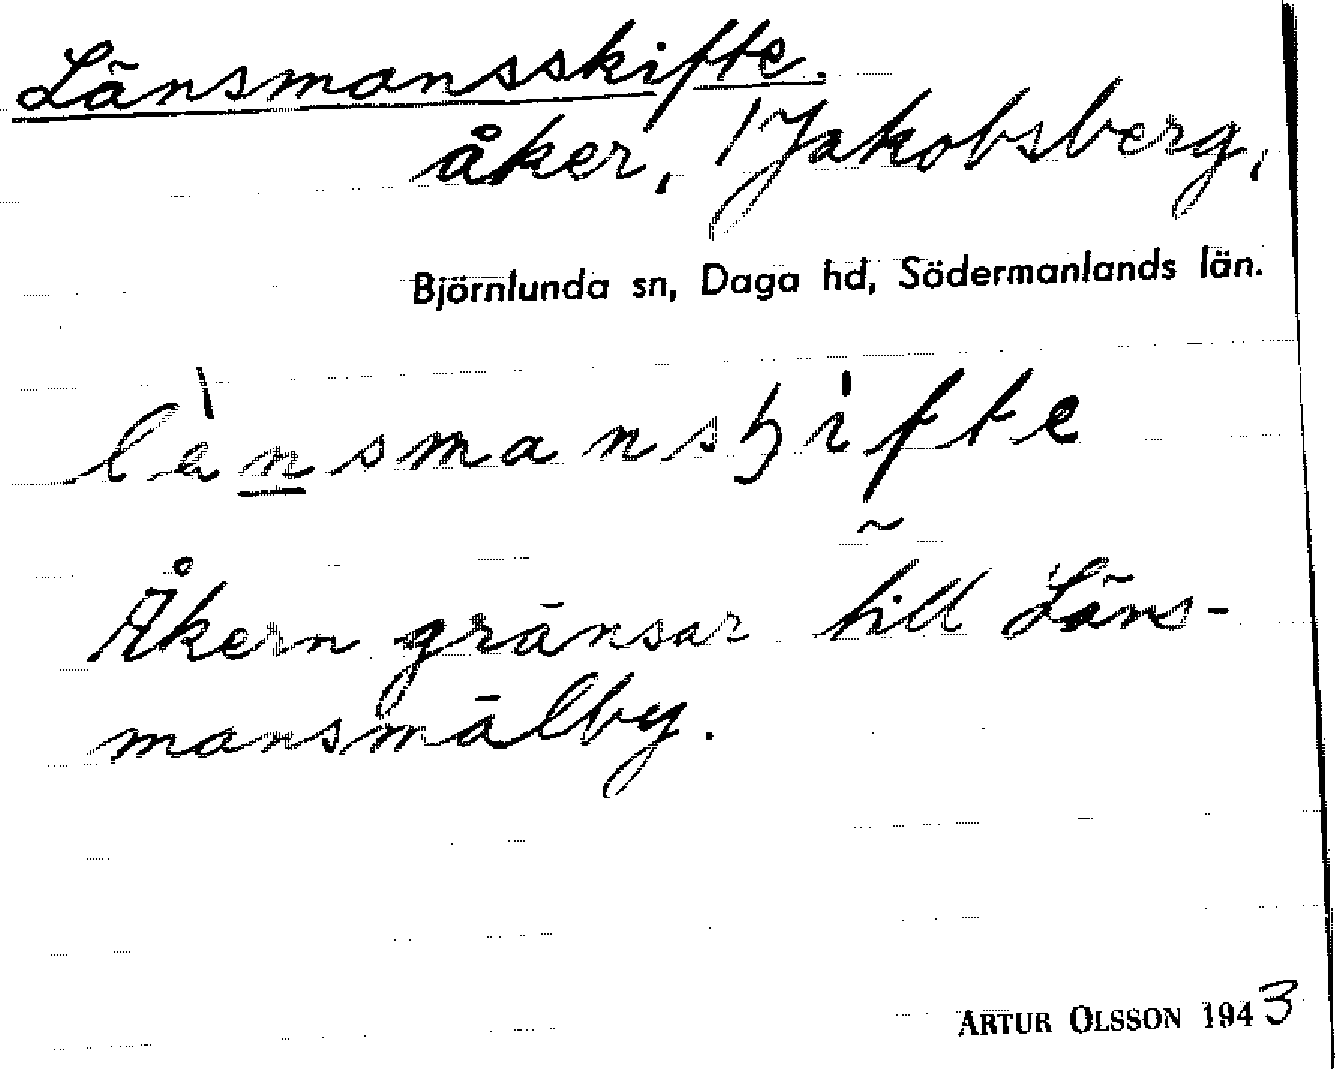 Länsmansskifte.
åker, 1/Jakobsberg,
Björnlunda sn, Daga hd, Södermanlands län.
Åkern gränsar till Läns-
mansmälby.
ARTUR OLSSON 1943